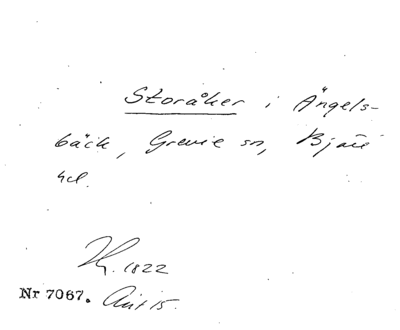 Storåker i Ängels-
bäck, Grevie sn, Bjäre
hd.
1822
Nr 7067.